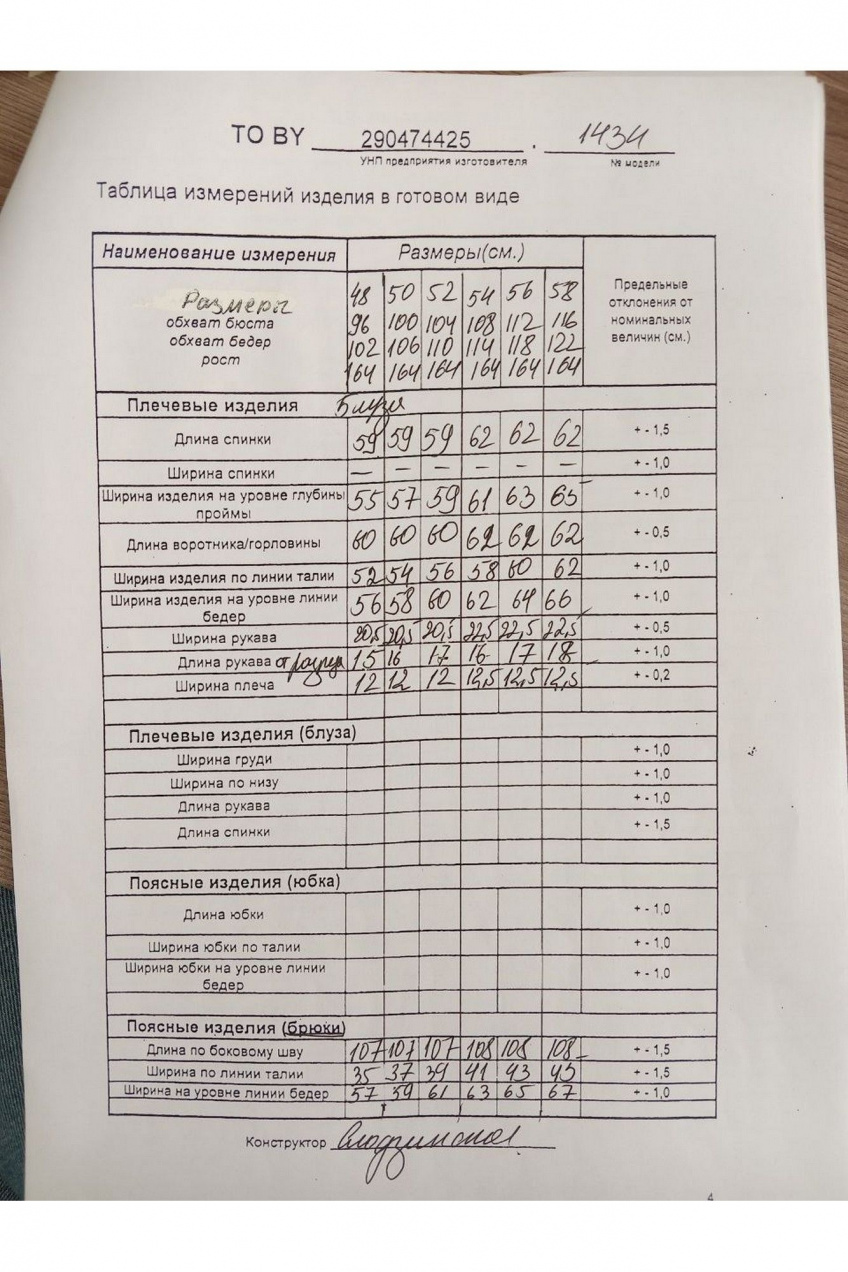 ТО BY 290474425 . 1434
УНП предприятия изготовителя № модели
Таблица измерений изделия в готовом виде
Наименование измерения Размеры(см.) Предельные отклонения от номинальных величин (см.)
Размеры 48 50 52 54 56 58
обхват бюста 96 100 104 108 112 116
обхват бедер 102 106 110 114 118 122
рост 164 164 164 164 164 164
Плечевые изделия Блуза
Длина спинки 59 59 59 62 62 62 + - 1,5
Ширина спинки — — — — — — + - 1,0
Ширина изделия на уровне глубины проймы 55 57 59 61 63 65 + - 1,0
Длина воротника/горловины 60 60 60 62 62 62 + - 0,5
Ширина изделия по линии талии 52 54 56 58 60 62 + - 1,0
Ширина изделия на уровне линии бедер 56 58 60 62 64 66 + - 1,0
Ширина рукава 20,5 20,5 20,5 22,5 22,5 22,5 + - 0,5
Длина рукава от 15 16 17 16 17 18 + - 1,0
Ширина плеча 12 12 12 12,5 12,5 12,5 + - 0,2
Плечевые изделия (блуза)
Ширина груди + - 1,0
Ширина по низу + - 1,0
Длина рукава + - 1,0
Длина спинки + - 1,5
Поясные изделия (юбка)
Длина юбки + - 1,0
Ширина юбки по талии + - 1,0
Ширина юбки на уровне линии бедер + - 1,0
Поясные изделия (брюки)
Длина по боковому шву 107 107 107 108 108 108 + - 1,5
Ширина по линии талии 35 37 39 41 43 45 + - 1,5
Ширина на уровне линии бедер 57 59 61 63 65 67 + - 1,0
Конструктор
4